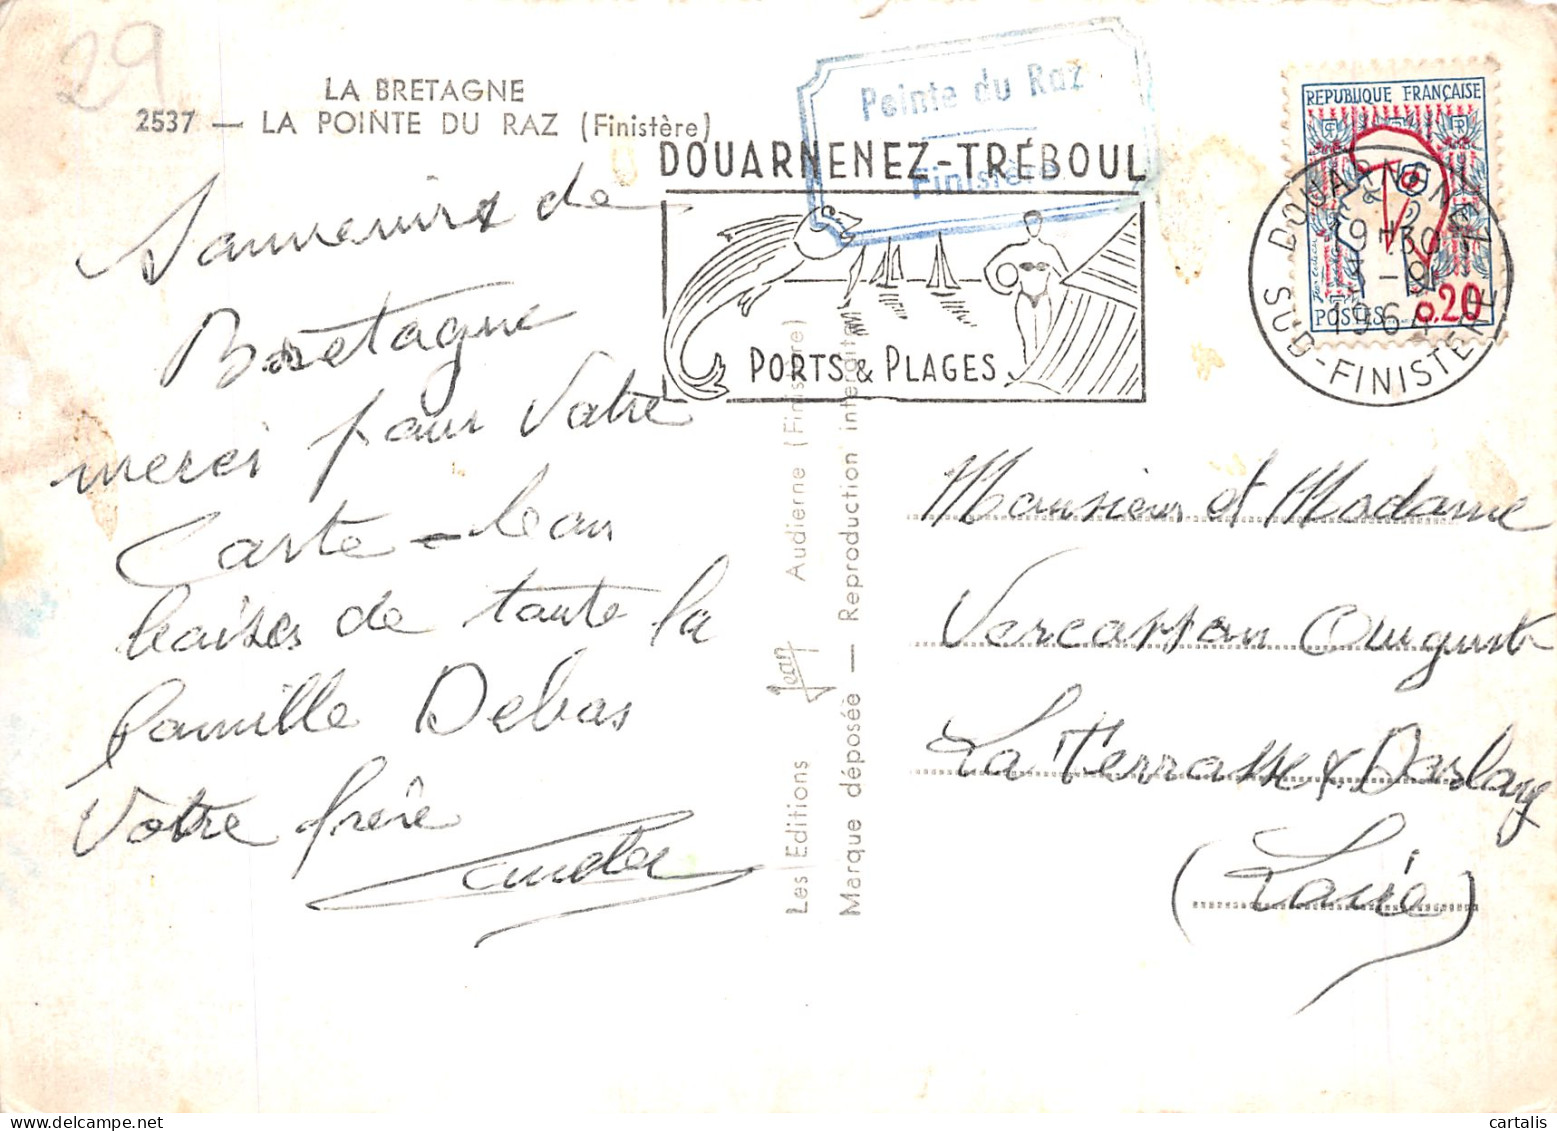 29
LA BRETAGNE
2537 — LA POINTE DU RAZ (Finistère)
Souvenirs de
Bretagne
merci pour Votre
Carte - bons
baises de toute la
famille Debas
Votre frère
Pointe du Raz
Finistère
DOUARNENEZ-TRÉBOUL
PORTS & PLAGES
REPUBLIQUE FRANÇAISE
POSTES
0,20
DOUARNENEZ
19H30
-9
1964
SUD-FINISTERE
Les Editions Jean Audierne (Finistère)
Marque déposée — Reproduction interdite
Monsieur et Madame
Vercasson Auguste
La Terrasse s Dorlay
(Loire)
cartalis